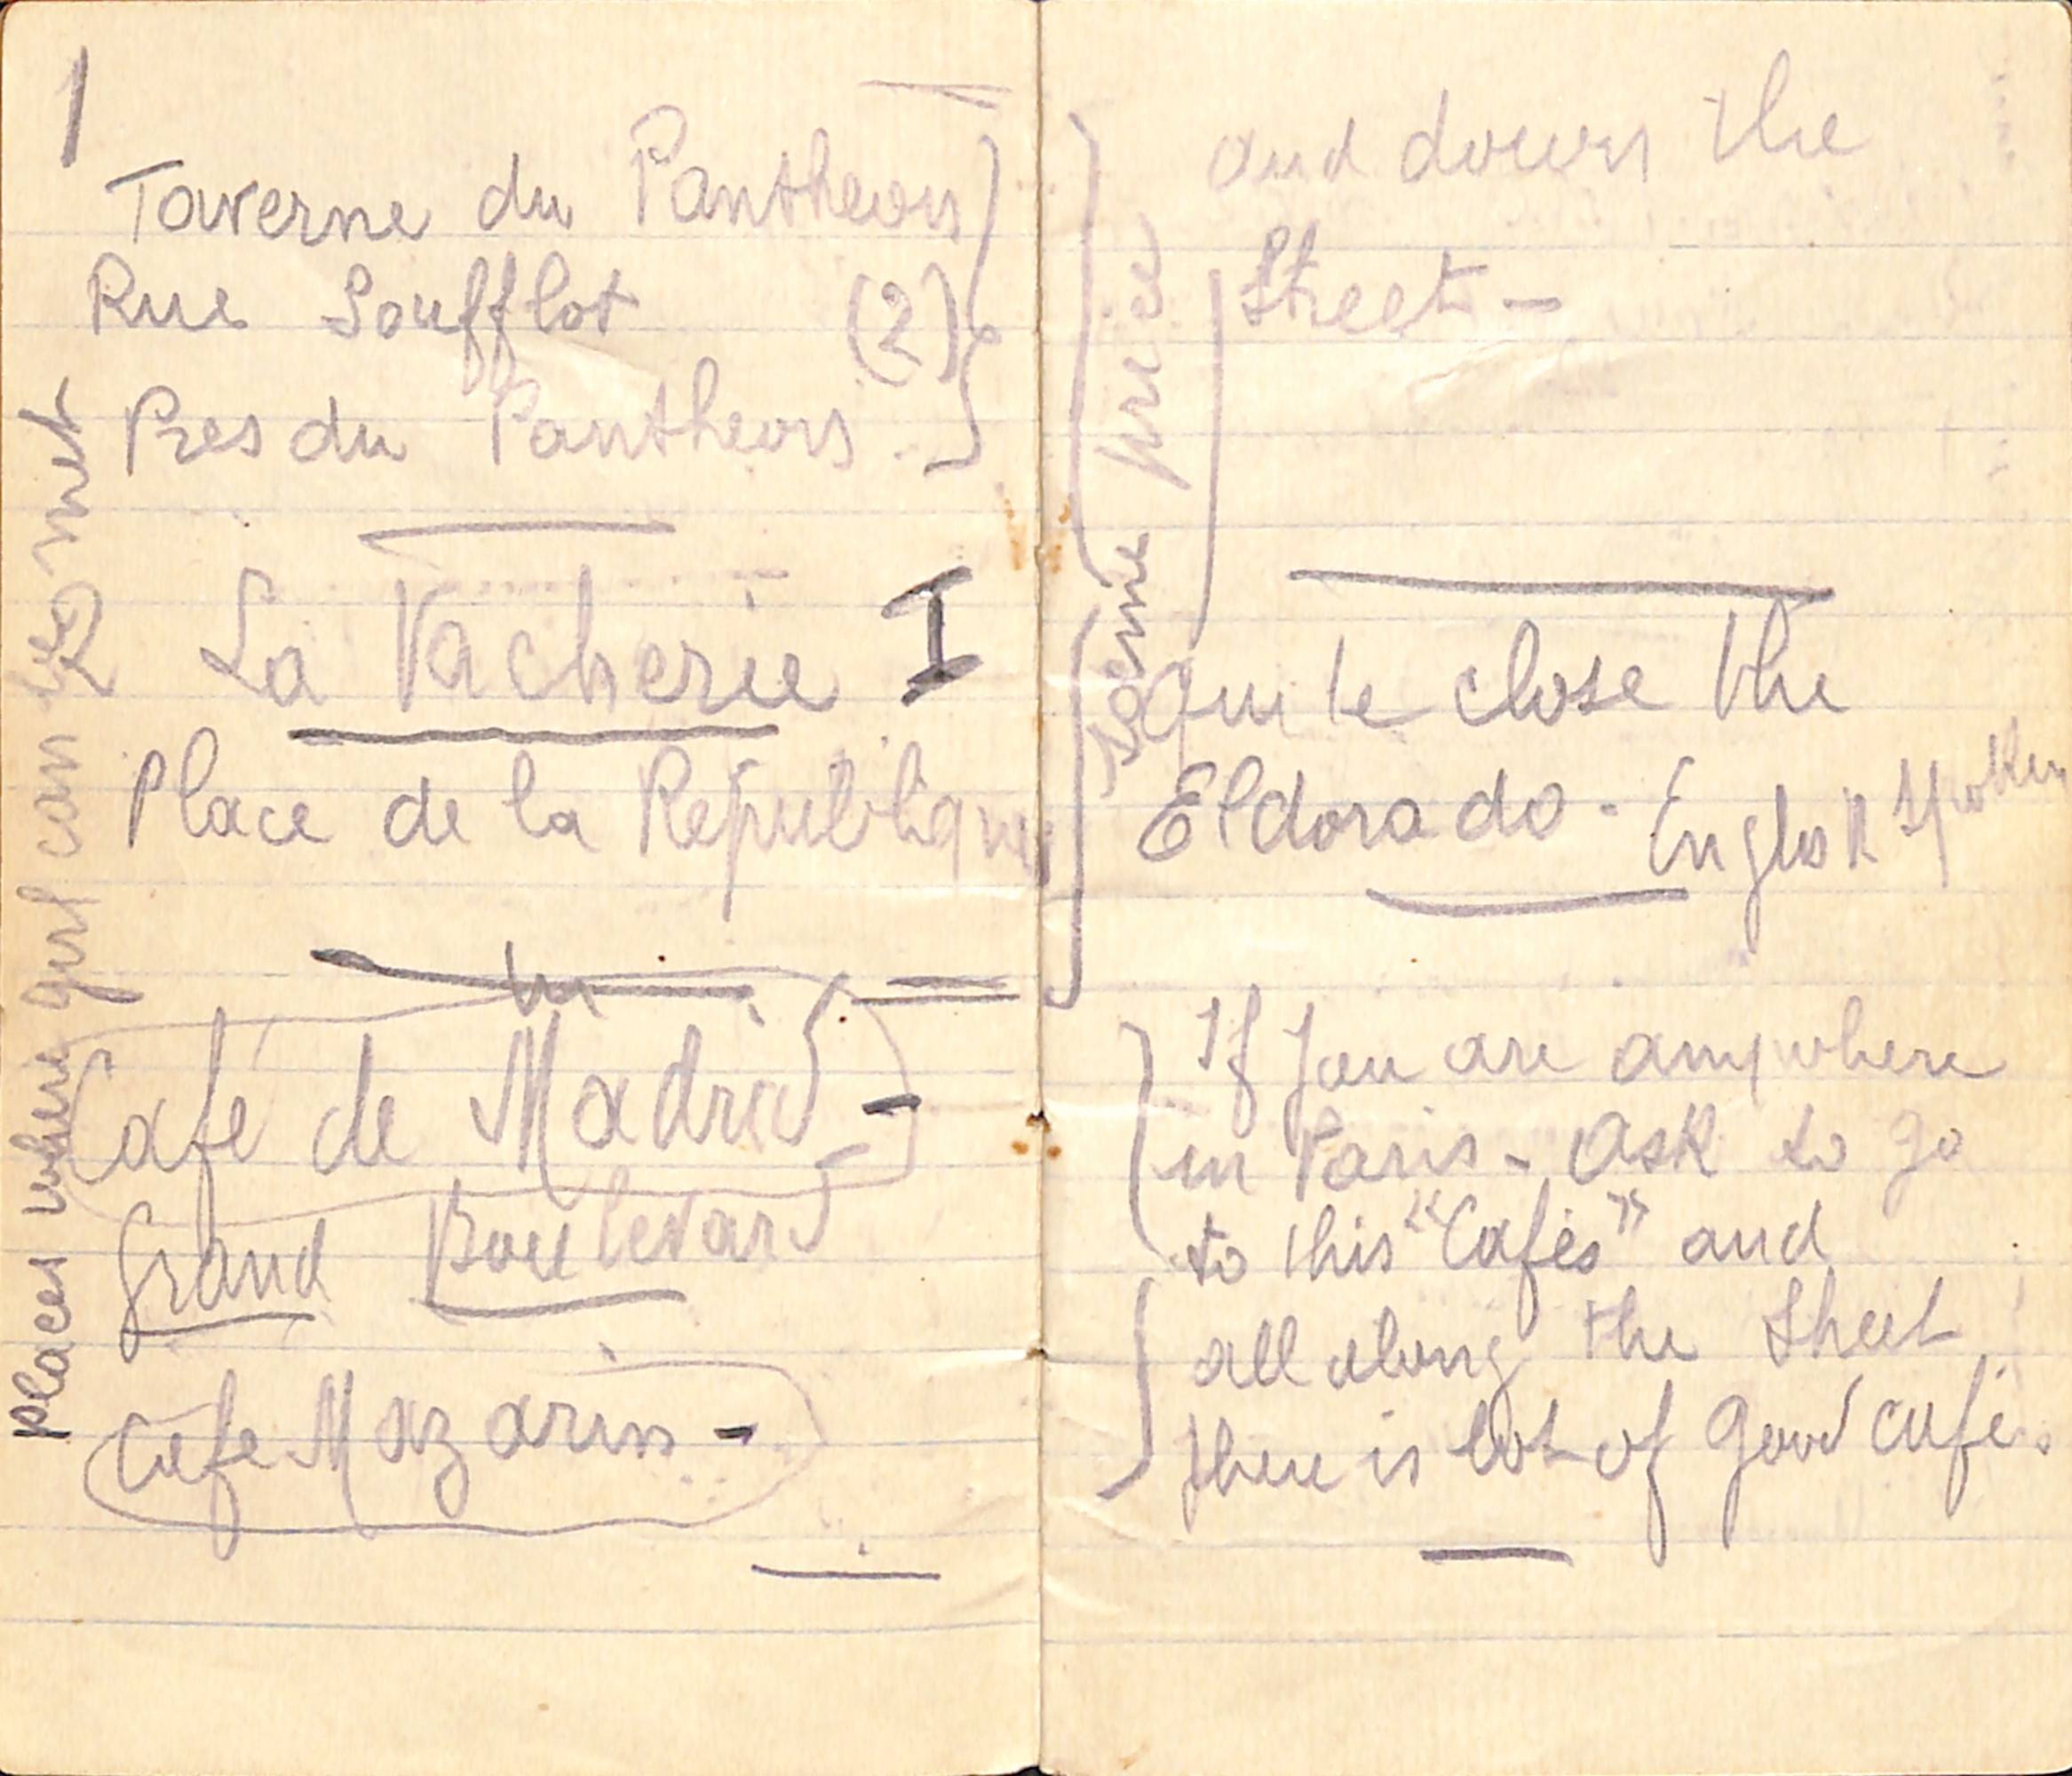 1
Taverne du Pantheon
Rue Soufflot (2)
Pres du Pantheon
La Vacherie I
Place de la Republique
Café de Madrid -
Grand Boulevard
Cafe Mazarin -
places where girl can be met
and down the
Street -
same price
Quite close the
Eldorado - English Spoken
If you are anywhere
in Paris - ask to go
to this "Cafés" and
all along the street
there is lot of good café.